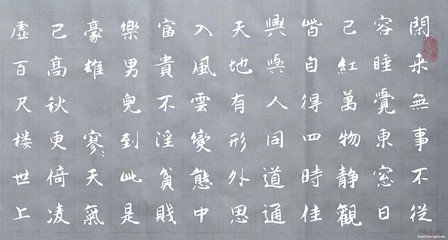 閑来無事不從
容睡覺東窓日
己紅萬物静觀
皆自得四時佳
興與人同道通
天地有形外思
入風雲變態中
富貴不淫貧賎
樂男兒到此是
豪雄 寥天氣
己高秋更倚凌
虚百尺楼世上